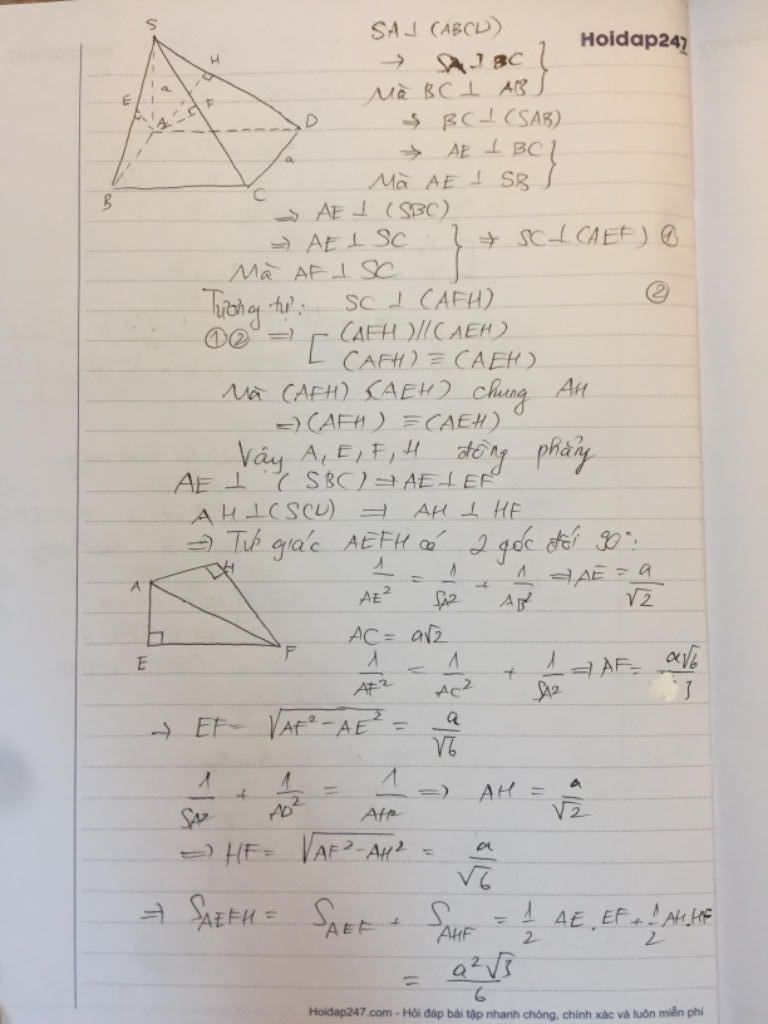 S
H
E
a
F
A
D
a
B
C
Hoidap247
SA ⊥ (ABCD)
→ SA ⊥ BC
Mà BC ⊥ AB
⇒ BC ⊥ (SAB)
⇒ AE ⊥ BC
Mà AE ⊥ SB
⇒ AE ⊥ (SBC)
⇒ AE ⊥ SC } ⇒ SC ⊥ (AEF) ①
Mà AF ⊥ SC
Tương tự: SC ⊥ (AFH) ②
①② ⇒ [ (AFH) // (AEH)
(AFH) ≡ (AEH)
Mà (AFH) & (AEH) chung AH
⇒ (AFH) ≡ (AEH)
Vậy A, E, F, H đồng phẳng
AE ⊥ (SBC) ⇒ AE ⊥ EF
AH ⊥ (SCD) ⇒ AH ⊥ HF
⇒ Tứ giác AEFH có 2 góc đối 90°:
A
H
E
F
1/AE² = 1/SA² + 1/AB² ⇒ AE = a/√2
AC = a√2
1/AF² = 1/AC² + 1/SA² ⇒ AF = a√6/3
→ EF = √(AF² - AE²) = a/√6
1/SA² + 1/AD² = 1/AH² ⇒ AH = a/√2
⇒ HF = √(AF² - AH²) = a/√6
⇒ S_AEFH = S_AEF + S_AHF = 1/2 AE.EF + 1/2 AH.HF
= a²√3/6
Hoidap247.com - Hỏi đáp bài tập nhanh chóng, chính xác và luôn miễn phí